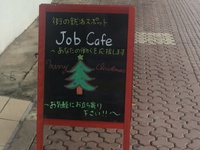 街の就活スポット
Job Cafe
～あなたの働くを応援します
Merry Christmas
～お気軽にお立ち寄り
下さい!!～